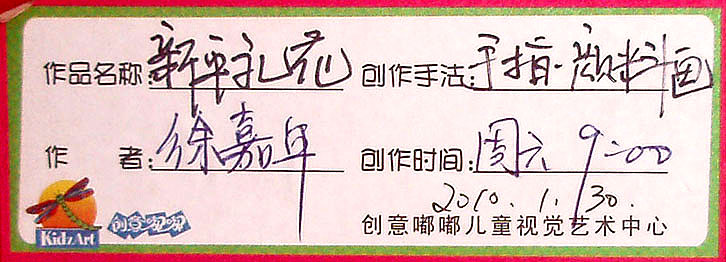 作品名称:新年礼花 创作手法:手指·颜料画
作 者:徐嘉年 创作时间:周六 9:00
2010.1.30.
KidzArt 创意嘟嘟 创意嘟嘟儿童视觉艺术中心